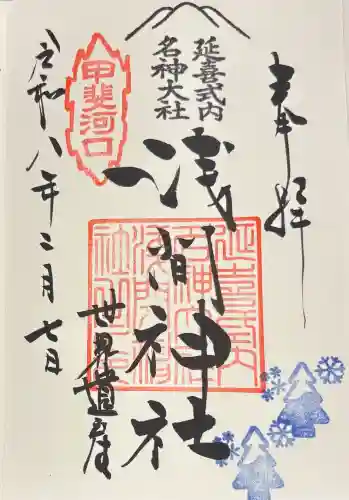 奉拝
延喜式内
名神大社
浅間神社
甲斐河口
世界遺産
令和八年二月七日